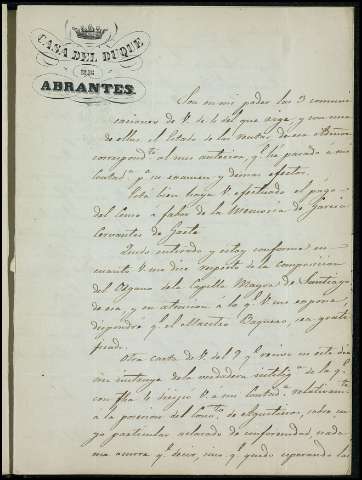 CASA DEL DUQUE
DE
ABRANTES.
Son en mi poder las 3 comuni
caciones de V. de 4 del que rige, y con una
de ellas, el Estado de las rentas de esa Admon
correspond.te al mes anterior, q.e he pasado á mi
Contad.a p.a su examen y demas efectos.
Está bien haya V. efectuado el pago
del Censo á favor de la Memoria de Garcia
Cervantes de Gaete
Quedo enterado y estoy conforme en
cuanto V. me dice respecto de la composicion
del Organo de la Capilla Mayor de Santiago
de esa, y en atencion á lo q.e V. me expone,
dispondrá q.e el Maestro Baquero, sea grati
ficado.
Otra carta de V. del 9 q.e recivo en este dia
me entera de la verdadera de la q.e
con fha 4 dirijió V. á mi Contad.a relativam.te
á la posesion del Conv.to de Agustinos, sobre cu
yo particular aclarado de conformidad, nada
me ocurre q.e decir, sino q.e quedo esperando las